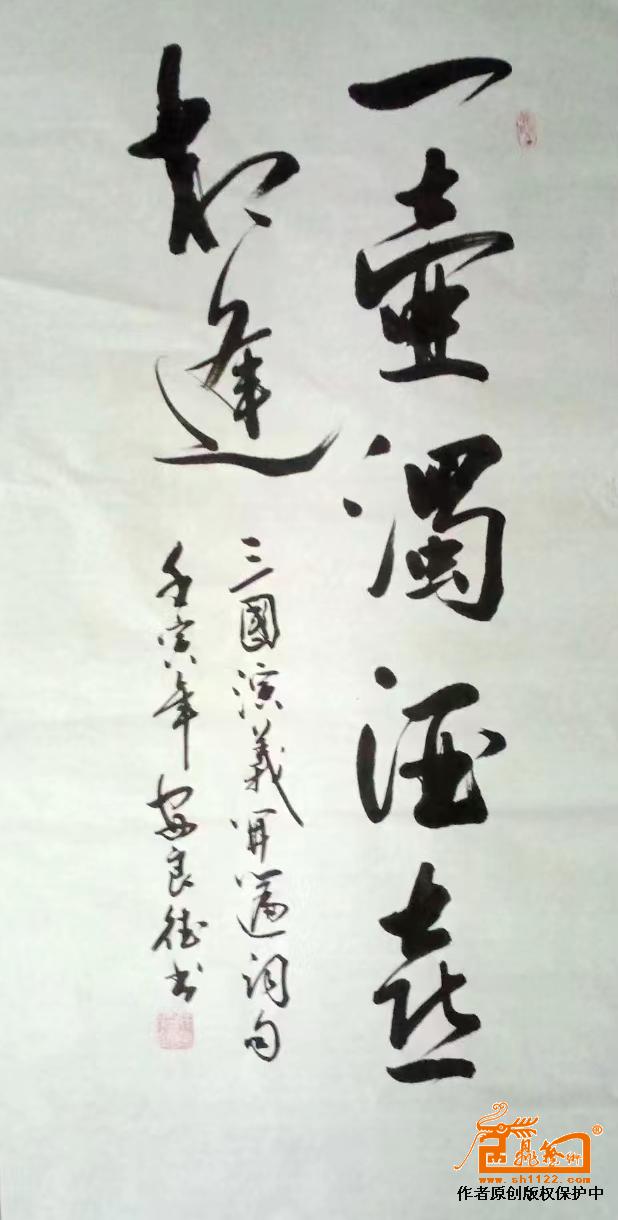 一壺濁酒喜
相逢
三國演義開篇詞句
壬寅年安良德书
www.sh1122.com
作者原创版权保护中